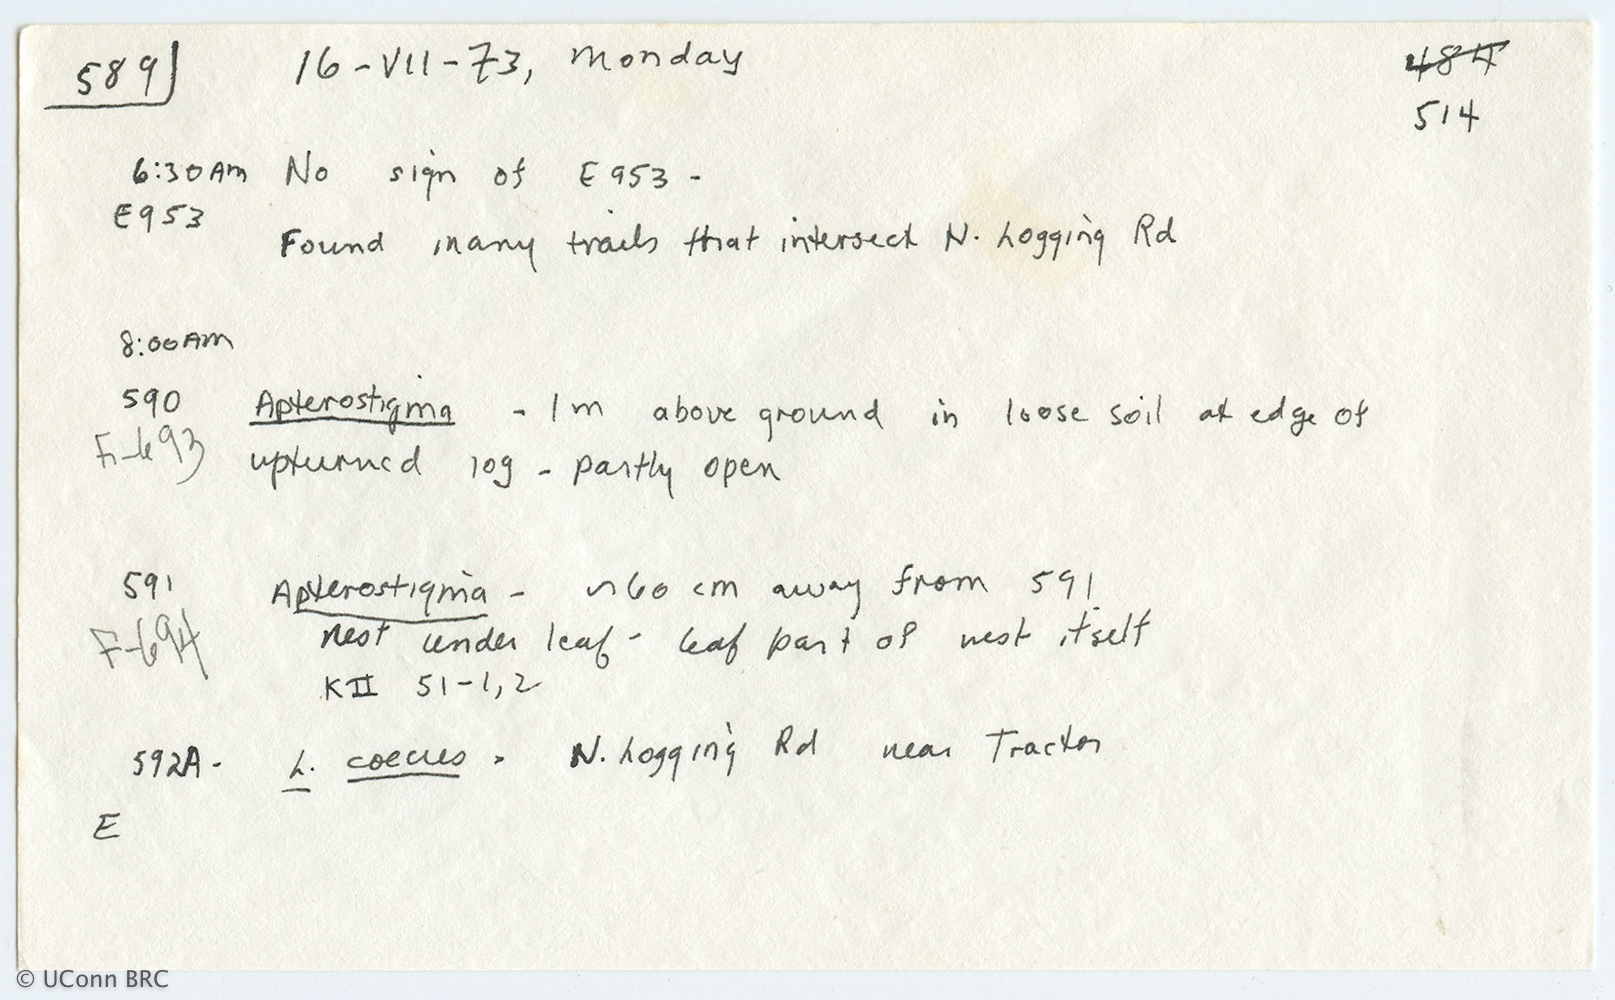 589 16-VII-73, Monday 484
514
6:30AM No sign of E953 -
E953
Found many trails that intersect N. Logging Rd
8:00AM
590 Apterostigma - 1m above ground in loose soil at edge of
F-693 upturned log - partly open
591 Apterostigma - ~60 cm away from 591
F-694 nest under leaf - leaf part of nest itself
KII 51-1,2
592A - L. coecus - N. Logging Rd near Tractor
E
© UConn BRC